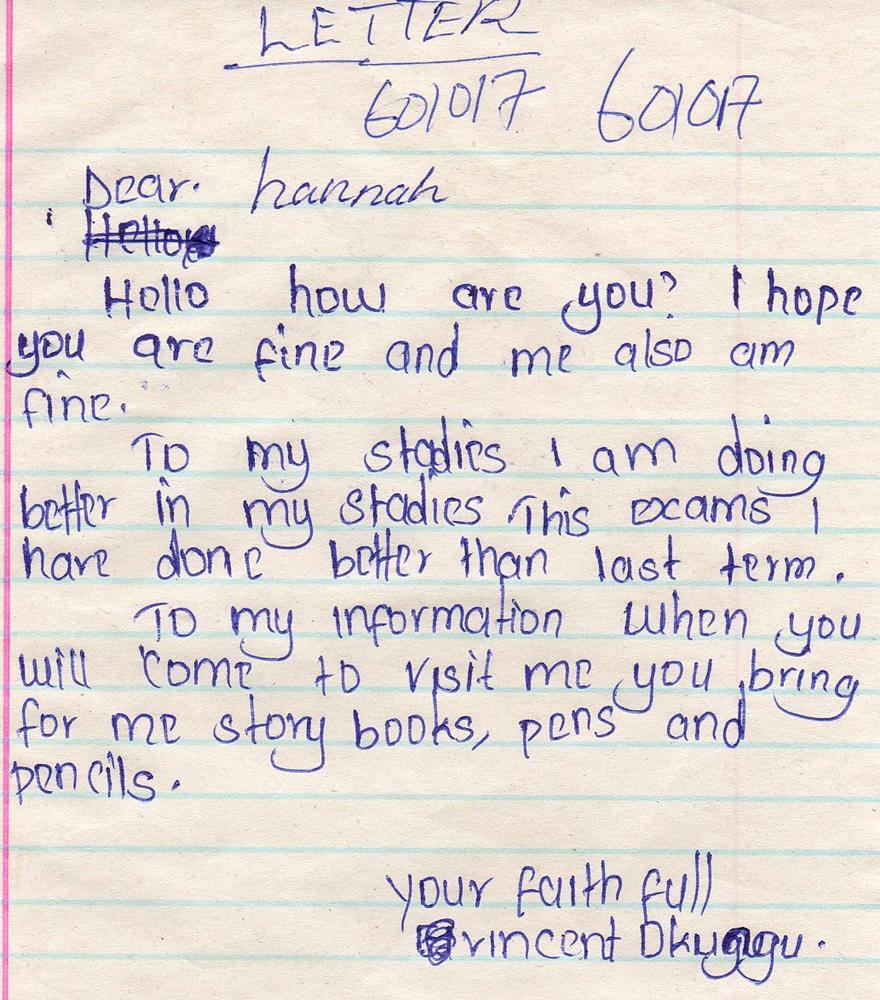 LETTER
601017 601017
Dear. hannah
Hello
Hello how are you? I hope
you are fine and me also am
fine.
To my stadies I am doing
better in my stadies This exams I
have done better than last term.
To my information when you
will come to visit me you bring
for me story books, pens and
pencils.
your faith full
vrincent